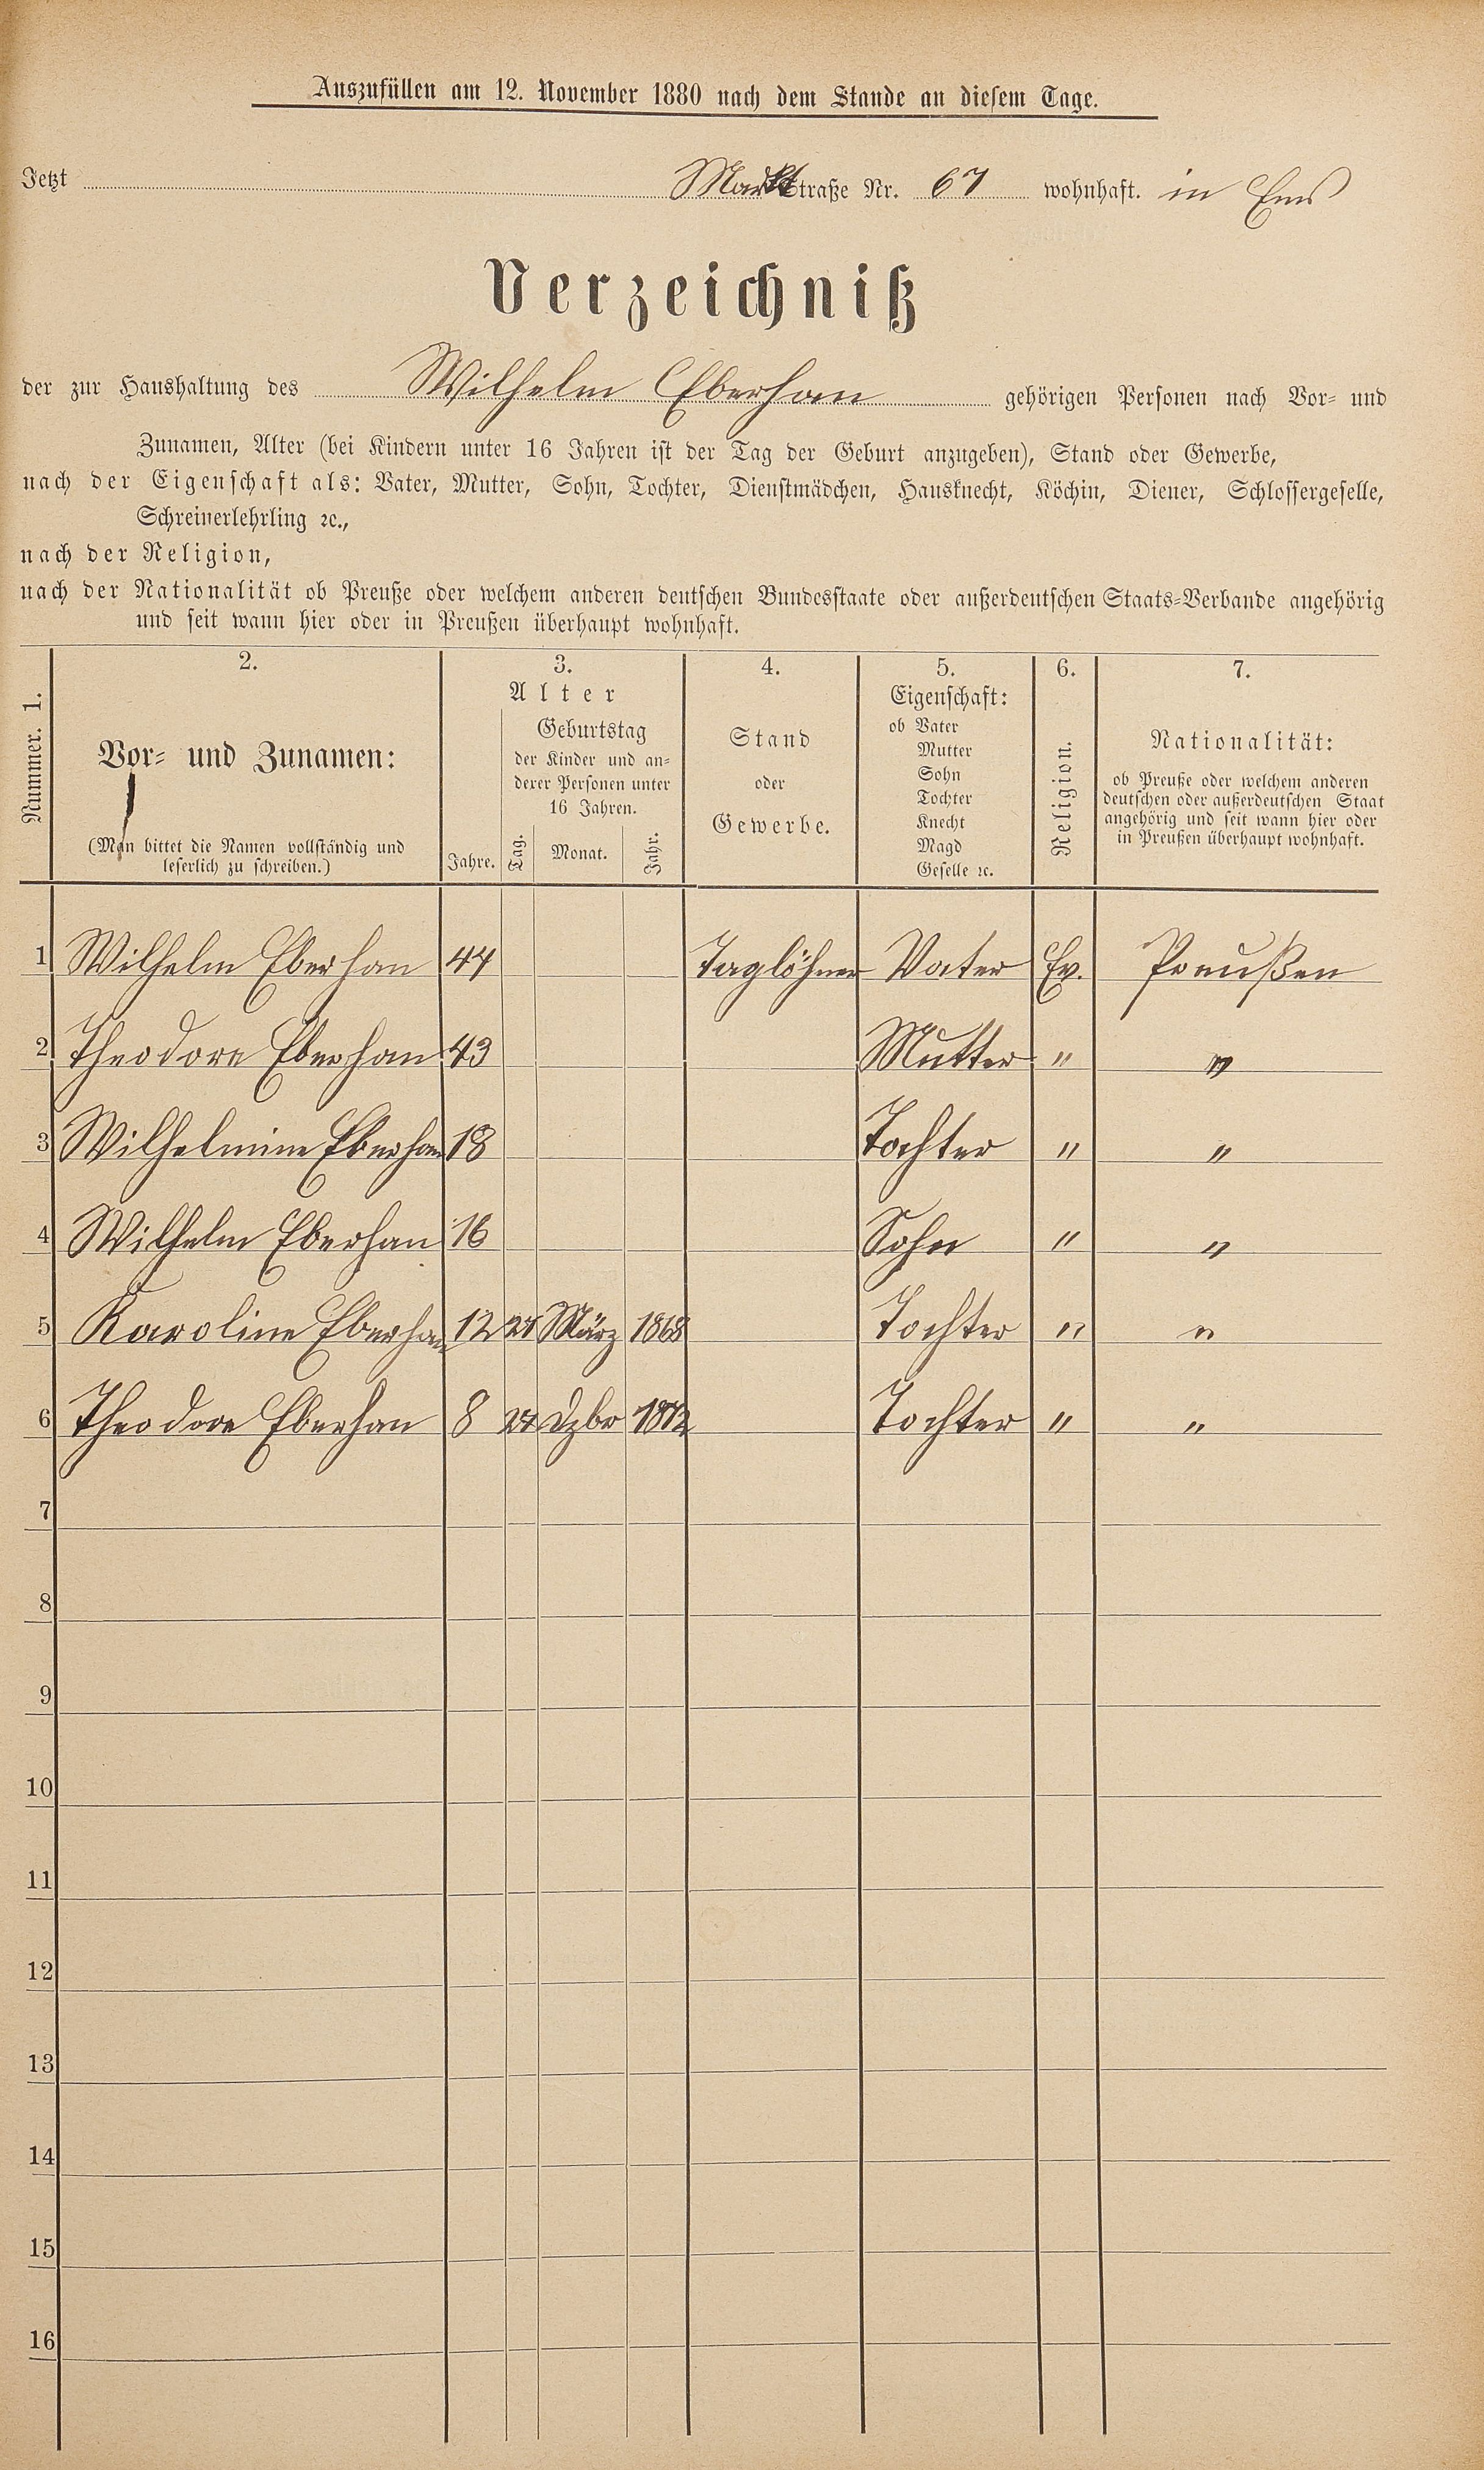 Auszufüllen am 12. November 1880 nach dem Stande an diesem Tage.
Jetzt Markt Straße Nr. 67 wohnhaft. in Ems
Verzeichniß
der zur Haushaltung des Wilhelm Eberhan gehörigen Personen nach Vor- und
Zunamen, Alter (bei Kindern unter 16 Jahren ist der Tag der Geburt anzugeben), Stand oder Gewerbe,
nach der Eigenschaft als: Vater, Mutter, Sohn, Tochter, Dienstmädchen, Hausknecht, Köchin, Diener, Schlossergeselle,
Schreinerlehrling ꝛc.,
nach der Religion,
nach der Nationalität ob Preuße oder welchem anderen deutschen Bundesstaate oder außerdeutschen Staats-Verbande angehörig
und seit wann hier oder in Preußen überhaupt wohnhaft.
Nummer. 1.
2.
Vor- und Zunamen:
(Man bittet die Namen vollständig und
leserlich zu schreiben.)
3.
Alter
Jahre.
Geburtstag
der Kinder und an-
derer Personen unter
16 Jahren.
Tag. Monat. Jahr.
4.
Stand
oder
Gewerbe.
5.
Eigenschaft:
ob Vater
Mutter
Sohn
Tochter
Knecht
Magd
Geselle ꝛc.
6.
Religion.
7.
Nationalität:
ob Preuße oder welchem anderen
deutschen oder außerdeutschen Staat
angehörig und seit wann hier oder
in Preußen überhaupt wohnhaft.
1 Wilhelm Eberhan 44 Taglöhner Vater Ev. Preußen
2 Theodore Eberhan 43 Mutter " "
3 Wilhelmine Eberhan 18 Tochter " "
4 Wilhelm Eberhan 16 Sohn " "
5 Karoline Eberhan 12 März 1868 Tochter " "
6 Theodore Eberhan 8 Dzbr 1872 Tochter " "
7
8
9
10
11
12
13
14
15
16